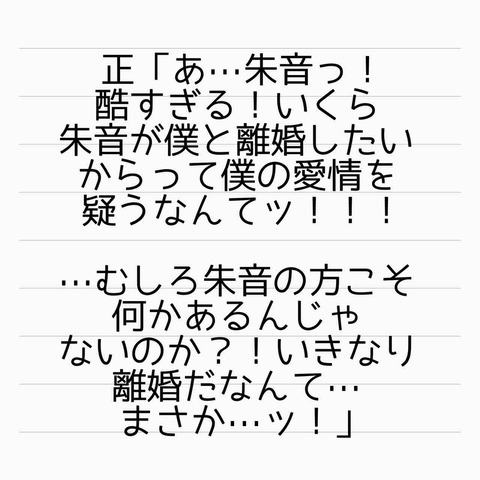 正「あ…朱音っ！
酷すぎる！いくら
朱音が僕と離婚したい
からって僕の愛情を
疑うなんてッ！！！
…むしろ朱音の方こそ
何かあるんじゃ
ないのか？！いきなり
離婚だなんて…
まさか…ッ！」